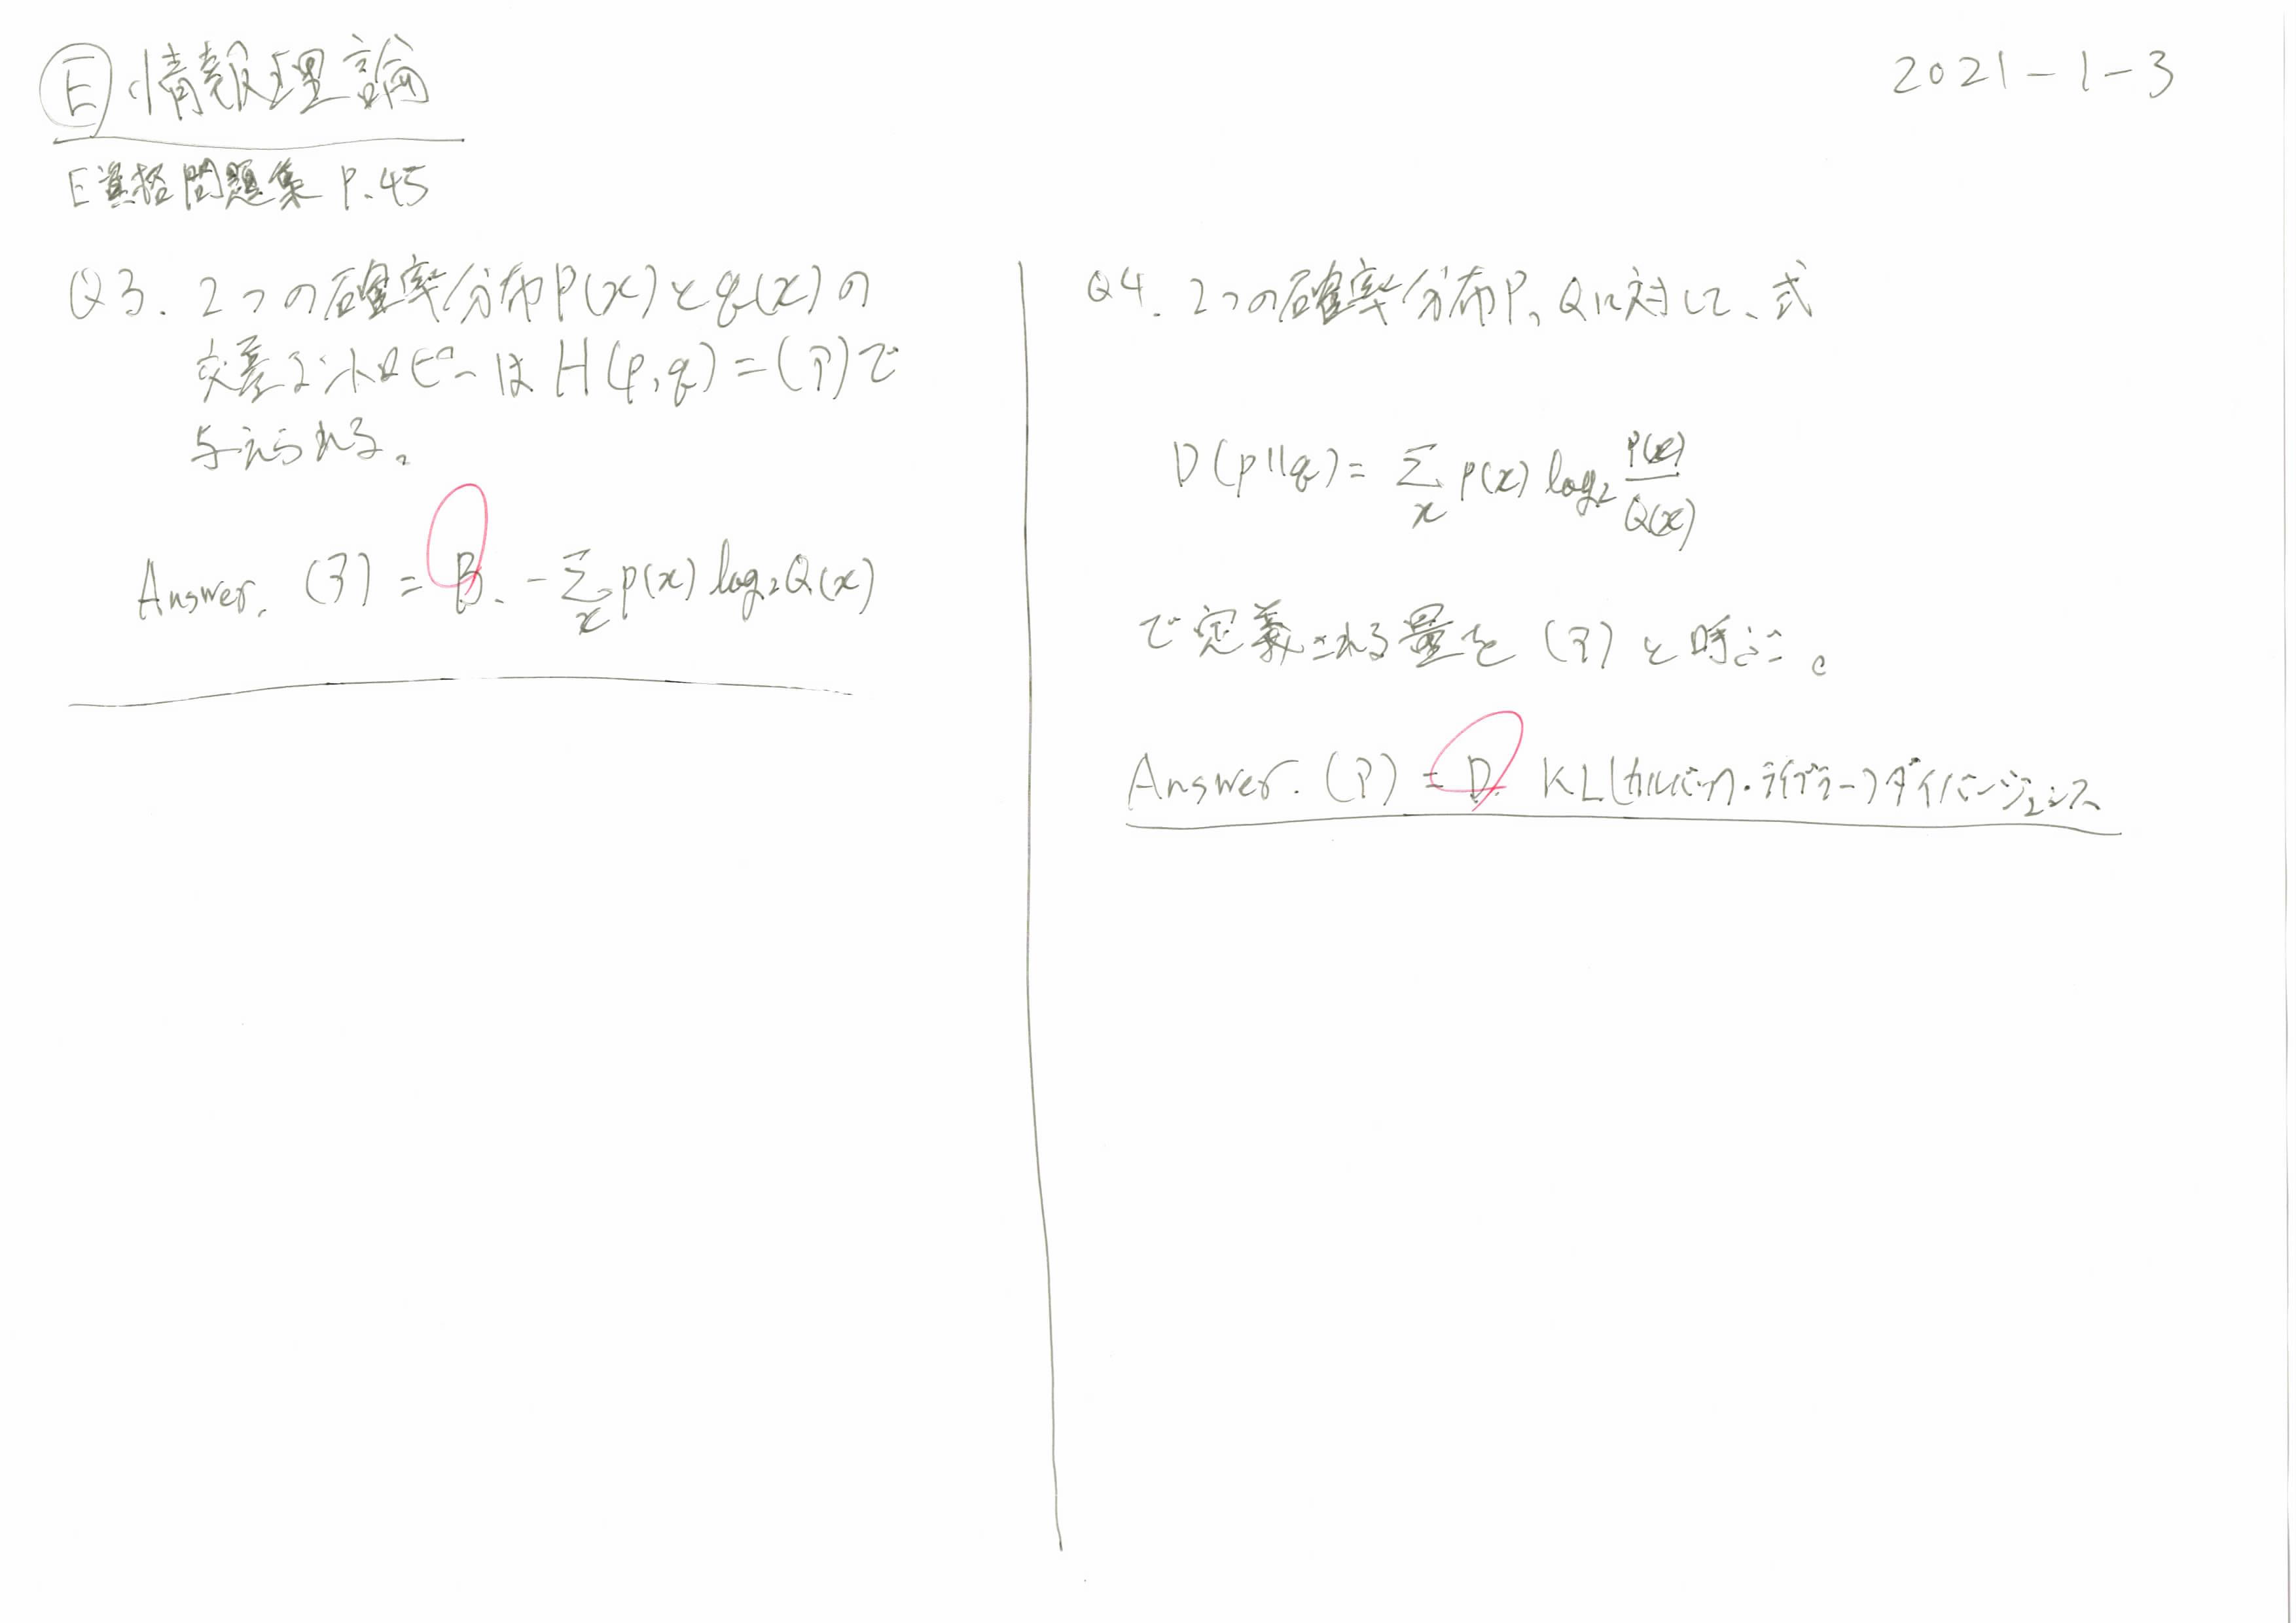 Ⓔ 情報理論
2021-1-3
E資格問題集 P.45
Q3. 2つの確率分布P(x)とq(x)の
交差エントロピーは H(p,q)=(ア)で
与えられる。
Answer. (ア) = B. -Σx p(x) log₂Q(x)
Q4. 2つの確率分布P、Qに対して、式
D(p||q) = Σx P(x) log₂ P(x)/Q(x)
で定義される量を(ア)と呼ぶ。
Answer. (ア) = D. KL(カルバック・ライブラー)ダイバージェンス